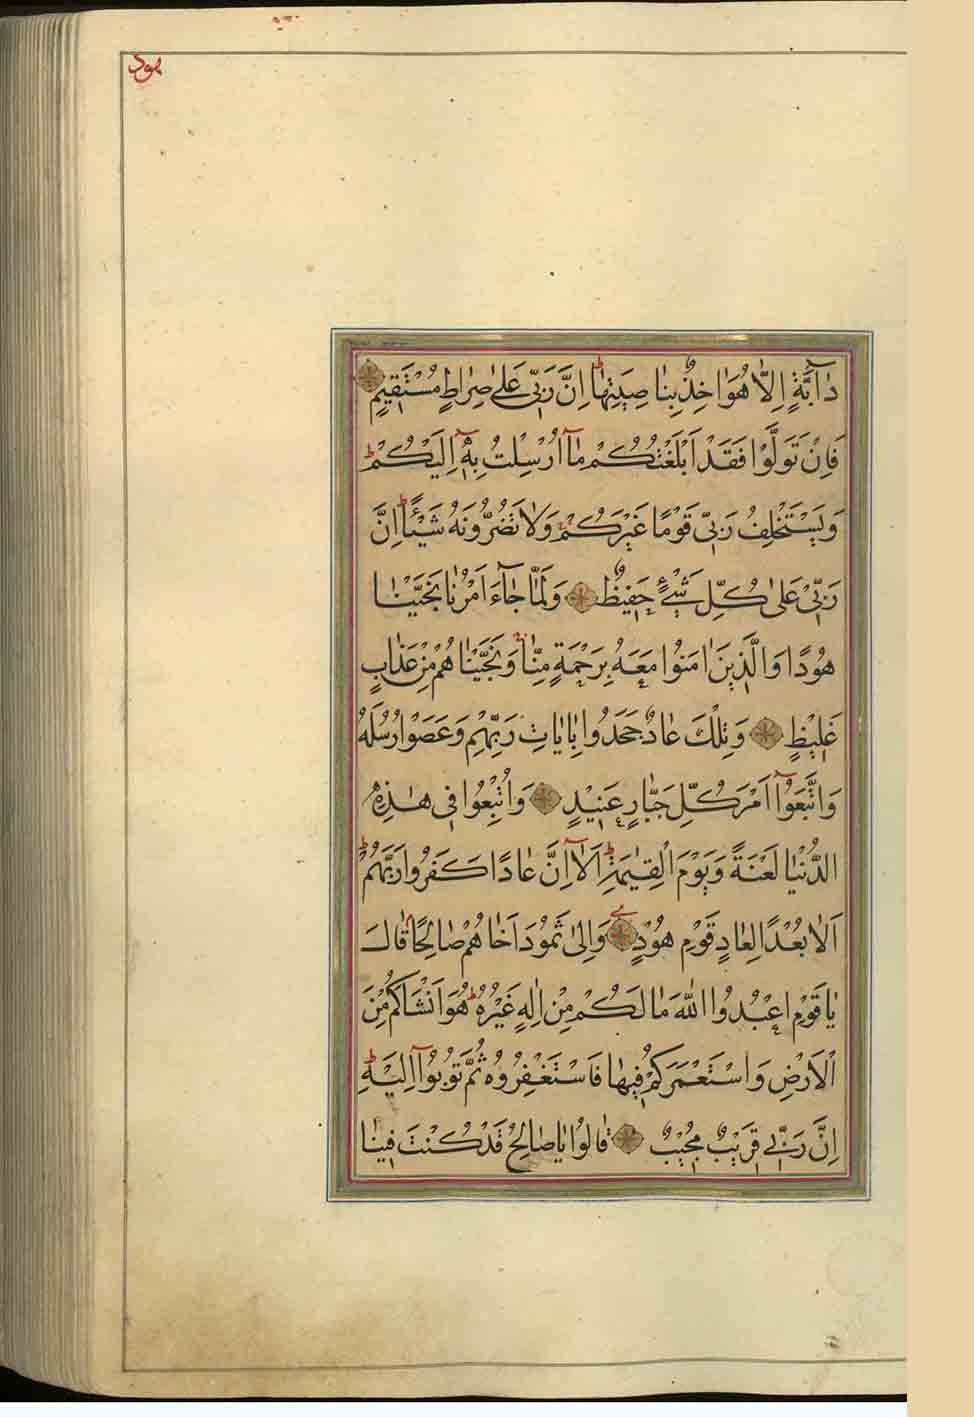 هود
دَآبَّةٍ اِلَّا هُوَ اٰخِذٌ بِنَاصِيَتِهَا اِنَّ رَبّ۪ي عَلٰى صِرَاطٍ مُسْتَق۪يمٍ
فَاِنْ تَوَلَّوْا فَقَدْ اَبْلَغْتُكُمْ مَآ اُرْسِلْتُ بِه۪ٓ اِلَيْكُمْ
وَيَسْتَخْلِفُ رَبّ۪ي قَوْمًا غَيْرَكُمْ وَلَا تَضُرُّونَهُ شَيْـًٔا اِنَّ
رَبّ۪ي عَلٰى كُلِّ شَيْءٍ حَف۪يظٌ وَلَمَّا جَآءَ اَمْرُنَا نَجَّيْنَا
هُودًا وَالَّذ۪ينَ اٰمَنُوا مَعَهُ بِرَحْمَةٍ مِنَّا وَنَجَّيْنَاهُمْ مِنْ عَذَابٍ
غَل۪يظٍ وَتِلْكَ عَادٌ جَحَدُوا بِاٰيَاتِ رَبِّهِمْ وَعَصَوْا رُسُلَهُ
وَاتَّبَعُوٓا اَمْرَ كُلِّ جَبَّارٍ عَن۪يدٍ وَاُتْبِعُوا ف۪ي هٰذِهِ
الدُّنْيَا لَعْنَةً وَيَوْمَ الْقِيٰمَةِ اَلَآ اِنَّ عَادًا كَفَرُوا رَبَّهُمْ
اَلَا بُعْدًا لِعَادٍ قَوْمِ هُودٍ وَاِلٰى ثَمُودَ اَخَاهُمْ صَالِحًا قَالَ
يَا قَوْمِ اعْبُدُوا اللّٰهَ مَا لَكُمْ مِنْ اِلٰهٍ غَيْرُهُ هُوَ اَنْشَاَكُمْ مِنَ
الْاَرْضِ وَاسْتَعْمَرَكُمْ ف۪يهَا فَاسْتَغْفِرُوهُ ثُمَّ تُوبُوٓا اِلَيْهِ
اِنَّ رَبّ۪ي قَر۪يبٌ مُج۪يبٌ قَالُوا يَا صَالِحُ قَدْ كُنْتَ ف۪ينَا